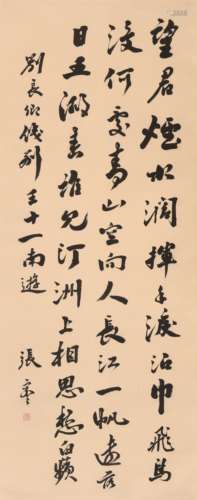 望君煙水濶揮手淚沾巾飛鳥
沒何處青山空向人長江一帆遠落
日五湖春誰見汀洲上相思愁白蘋
劉長卿餞別王十一南遊
張謇